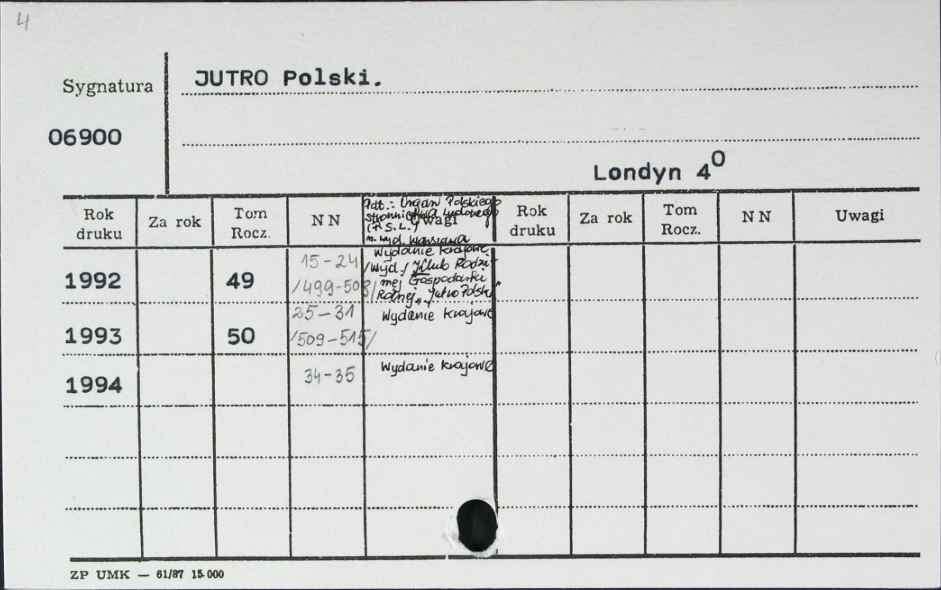 4
Sygnatura JUTRO Polski.
06900
Londyn 4⁰
Rok druku Za rok Tom Rocz. NN Uwagi Rok druku Za rok Tom Rocz. NN Uwagi
Organ Polskiego
Stronnictwa Ludowego
(P.S.L.)
m. wyd. Warszawa
1992 49 15-24 /499-508/ Wydanie krajowe
/Wyd./ Klub Rodzin-
nej Gospodarki
Rolnej "Jutro Polski"
1993 50 25-31 /509-515/ Wydanie krajowe
1994 34-35 Wydanie krajowe
ZP UMK — 61/87 15.000